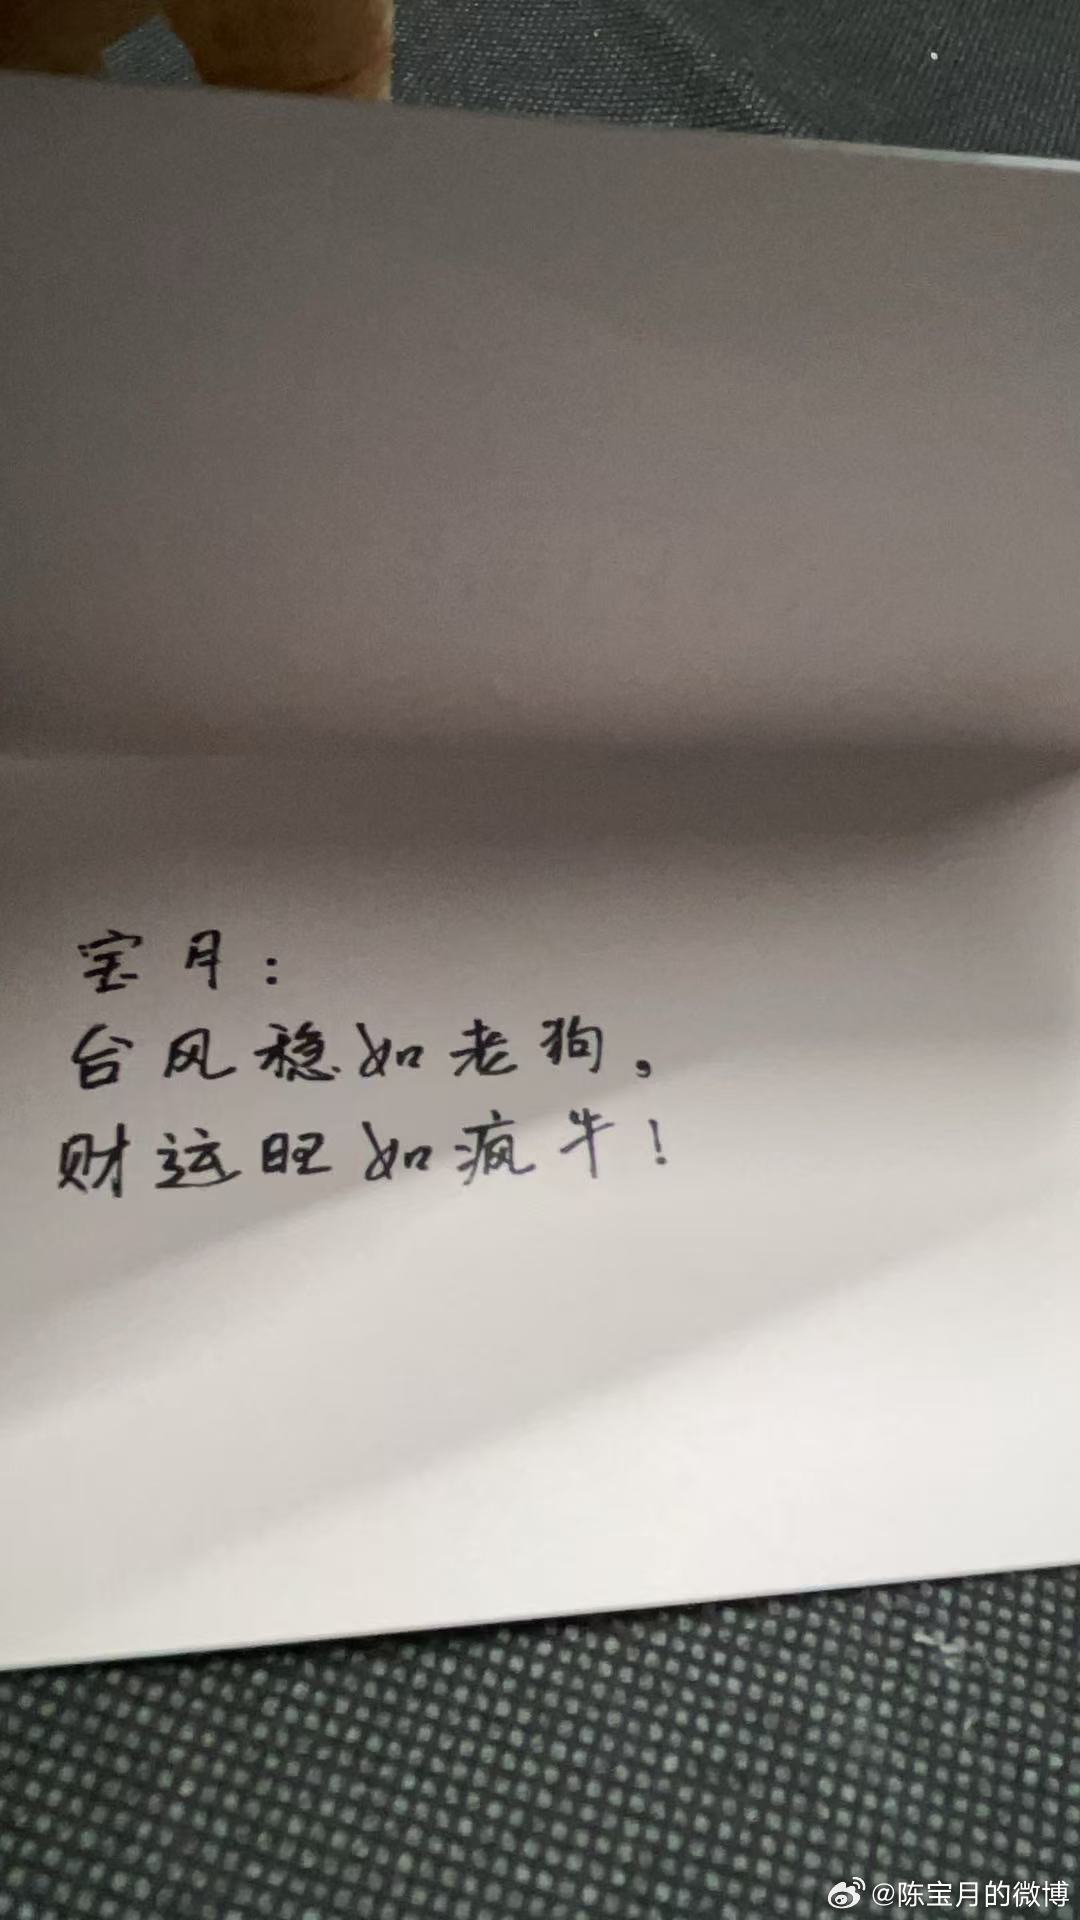 宝月：
台风稳如老狗，
财运旺如疯牛！
@陈宝月的微博